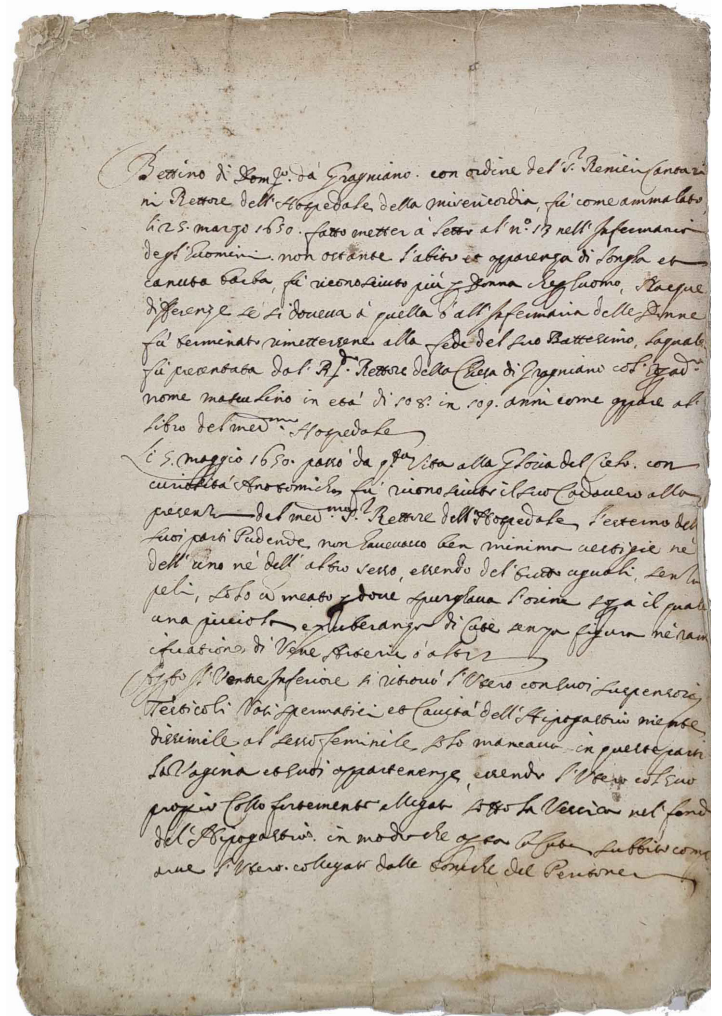 Bettino di Dom.co da Gragniano. con ordine del S.r Renieri Cantari
ni Rettore dell'Hospedale della misericordia, fù come ammalato,
li 25. marzo 1650. fatto metter à letto al n.º 13 nell'Infermaria
degl'Huomini. non ostante l'abito et apparenza di longha et
canuta barba, fù riconosciuto più Donna che huomo, Nacque
differenze se si doveva à quella ò all'Infermaria delle Donne
fù terminato rimettersene alla fede del suo Battesimo, laquale
fù presentata dal R.do Rettore della Chiesa di Gragniano col
nome masculino in età di 108. in 109. anni come appare al
libro del med.mo Hospedale
Li 5. maggio 1650. passò da q.sta Vita alla Gloria del Cielo. con
curiosità Anatomicha fù riconosciuto il suo Cadavero alla
presenza del med.mo S.r Rettore dell'Hospedale, l'esterno delle
suoi parti Pudende non havevano ben minima vestigie nè
dell'uno nè dell'altro sesso, essendo del tutto uguali, senza
peli, solo il meato p dove spurghava l'orina sopra il quale
una picciola exuberanza di Cute senza figura nè ram
ificatione di Vene Arterie ò altri
Aperto il Ventre Inferiore si ritrovò l'Utero con suoi suspensorii
Testicoli Vasi spermatici et Cavità dell'Hipogastrio niente
dissimile al sesso feminile solo mancava in queste parti
la Vagina et suoi appartenenze, essendo l'Utero col suo
proprio Collo fortemente allegato sotto la Vessica nel fondo
del'Hipogastrio. in modo che aperta la Cute subbito comp
arve l'Utero. collegato dalle toniche del Peritoneo